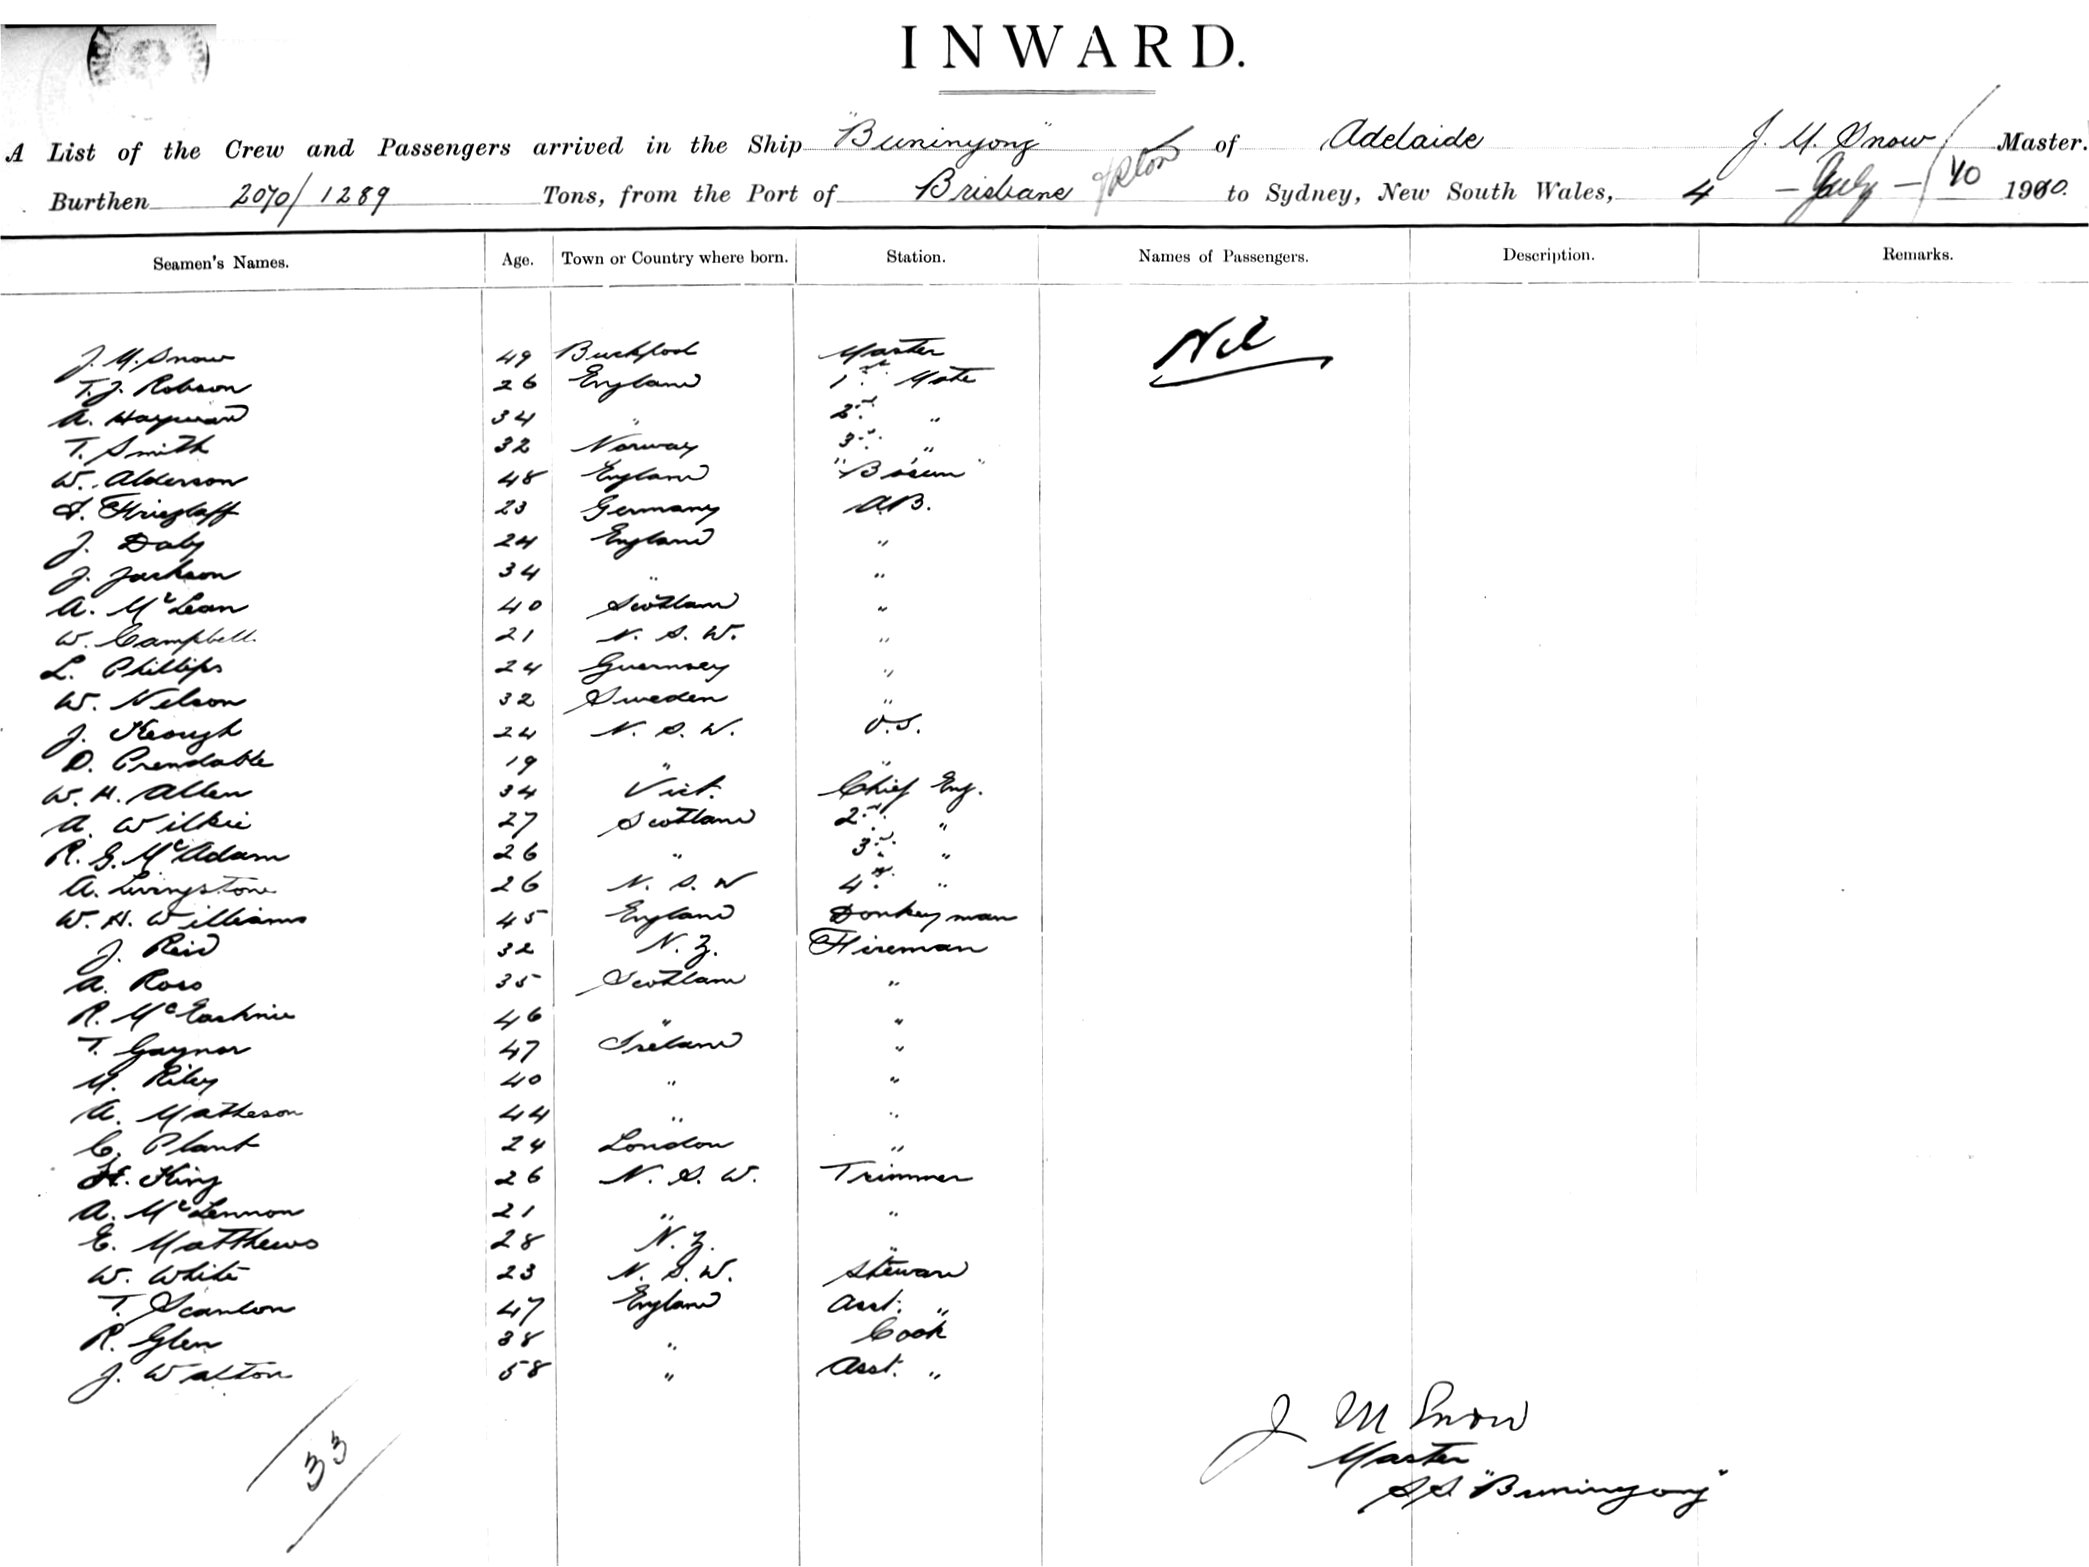 INWARD.
A List of the Crew and Passengers arrived in the Ship "Buninyong" of Adelaide J. M. Snow Master.
Burthen 2070/1289 Tons, from the Port of Brisbane to Sydney, New South Wales, 4 - July - / 10 1910.
Seamen's Names. Age. Town or Country where born. Station. Names of Passengers. Description. Remarks.
J. M. Snow 49 Master Nil
T. J. Robson 26 England 1st Mate
A. Hayward 34 " 2nd "
T. Smith 32 Norway 3rd "
W. Alderson 48 England "Bosun"
23 Germany A.B.
J. Daly 24 England "
J. Jackson 34 " "
A. McLean 40 Scotland "
W. Campbell 21 N. S. W. "
L. Phillips 24 Guernsey "
W. Nelson 32 Sweden "
J. Keough 24 N. S. W. O.S.
D. 19 " "
W. H. Allen 34 Vict. Chief Eng.
A. Wilkie 27 Scotland 2nd "
R. G. McAdam 26 " 3rd "
A. Livingstone 26 N. S. W 4th "
W. H. Williams 45 England Donkeyman
J. Reid 32 N. Z. Fireman
A. Ross 35 Scotland "
R. McEachnie 46 " "
T. Gaynor 47 Ireland "
M. Riley 40 " "
A. Matheson 44 " "
C. Plant 24 London "
H. King 26 N. S. W. Trimmer
A. McLennon 21 " "
E. Matthews 28 N. Z. "
W. White 23 N. S. W. Steward
T. Scanlon 47 England Asst. "
R. Glen 38 " Cook
J. Walton 58 " Asst. "
33
J M Snow
Master
SS "Buninyong"